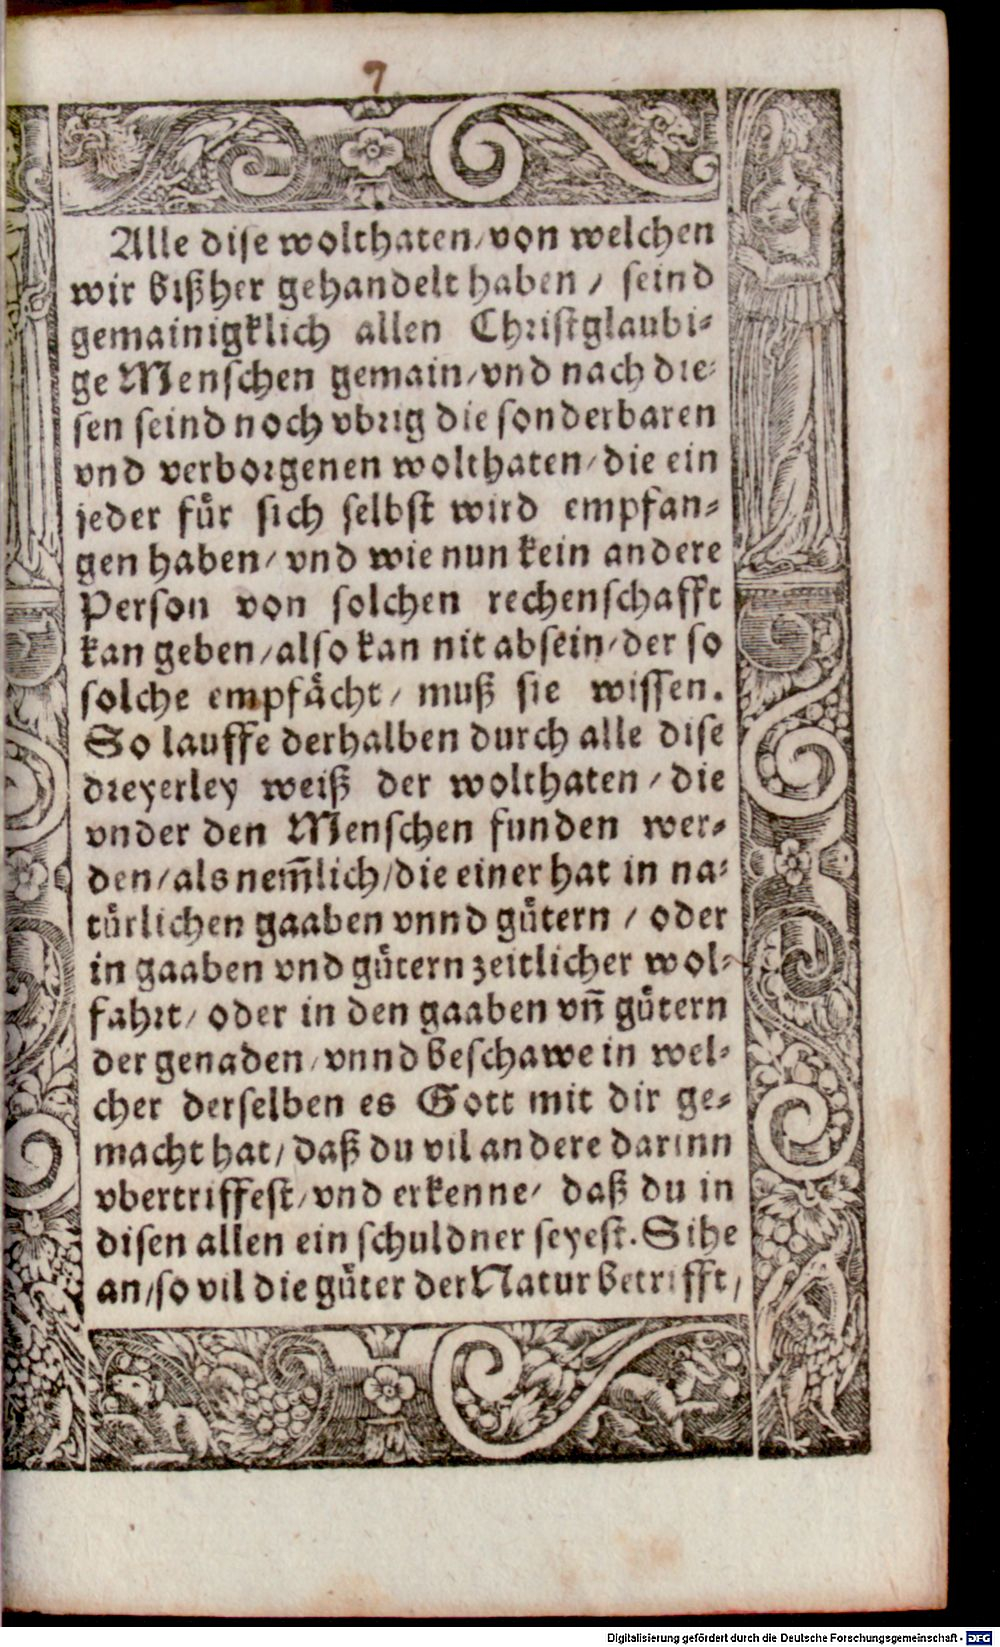 7
Alle dise wolthaten/ von welchen
wir bißher gehandelt haben / seind
gemainigklich allen Christglaubi-
ge Menschen gemain/ vnd nach die-
sen seind noch vbrig die sonderbaren
vnd verborgenen wolthaten/ die ein
jeder fuͤr sich selbst wird empfan-
gen haben/ vnd wie nun kein andere
Person von solchen rechenschafft
kan geben/ also kan nit absein/ der so
solche empfaͤcht/ muß sie wissen.
So lauffe derhalben durch alle dise
dreyerley weiß der wolthaten / die
vnder den Menschen funden wer-
den/ als nem̃lich/ die einer hat in na-
tuͤrlichen gaaben vnnd guͤtern / oder
in gaaben vnd guͤtern zeitlicher wol-
fahrt/ oder in den gaaben vñ guͤtern
der genaden/ vnnd beschawe in wel-
cher derselben es Gott mit dir ge-
macht hat/ daß du vil andere darinn
vbertriffest/ vnd erkenne/ daß du in
disen allen ein schuldner seyest. Sihe
an/ so vil die guͤter der Natur betrifft/
Digitalisierung gefördert durch die Deutsche Forschungsgemeinschaft - DFG